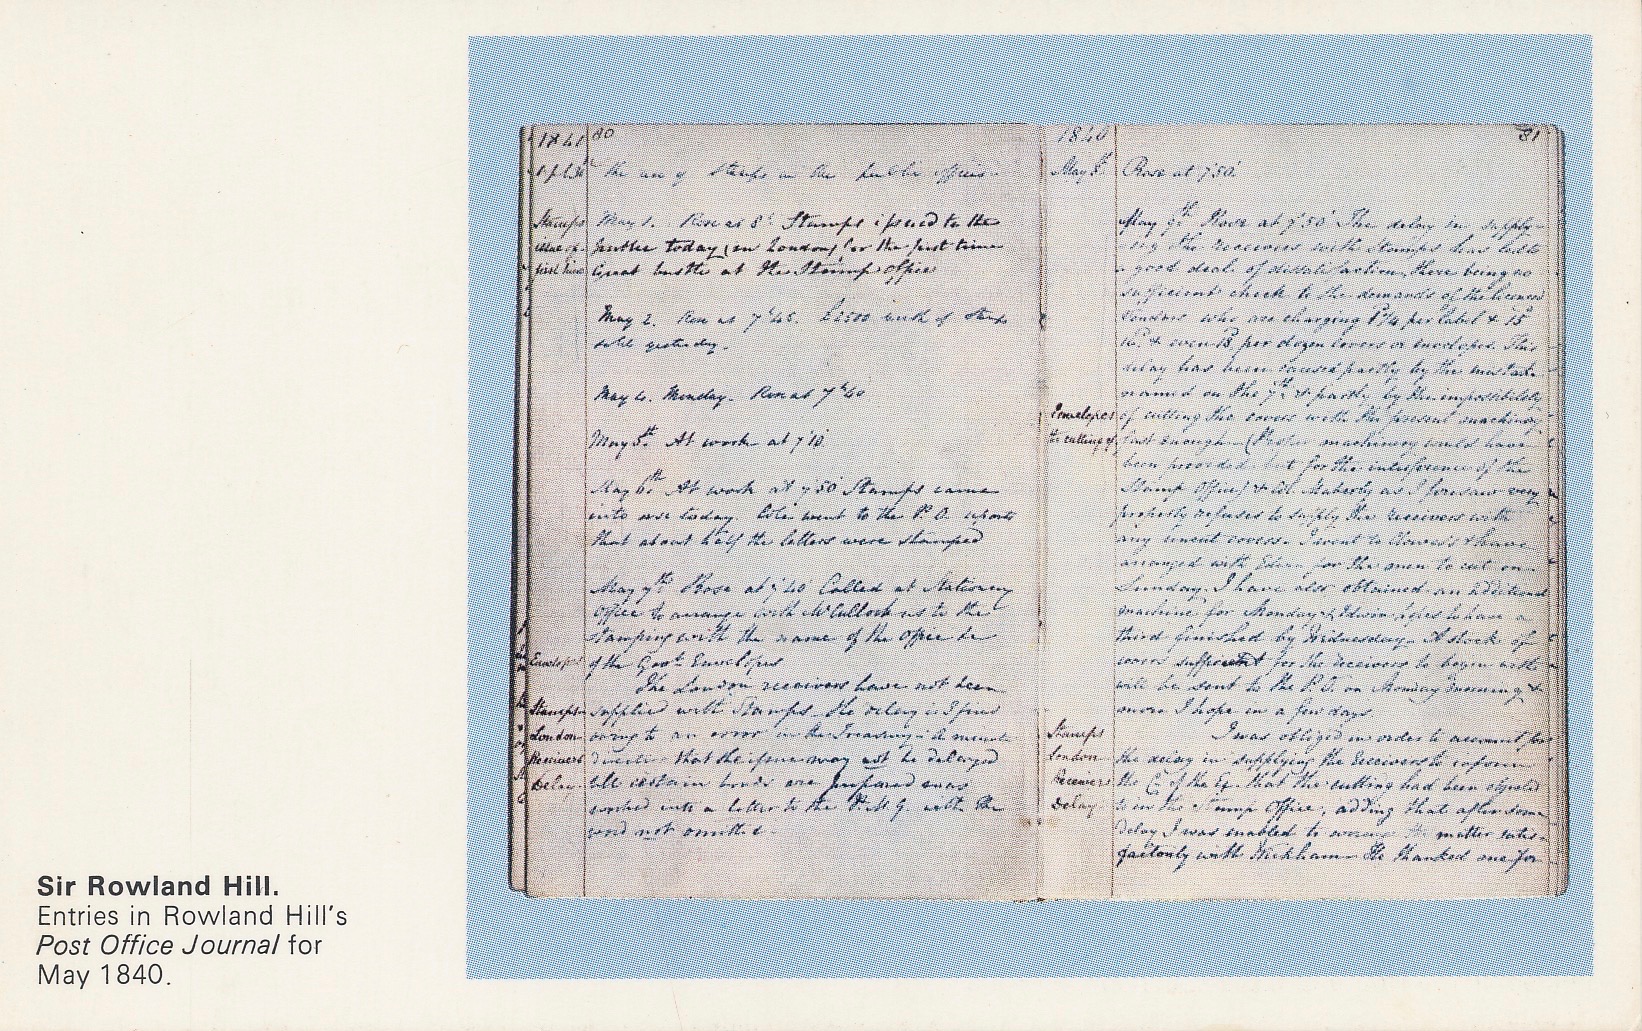 80
the use of Stamps in the public offices.
Stamps
issue of
first time
May 1. Rose at 8h Stamps issued to the
public today (in London) for the first time
Great bustle at the Stamp office
May 2. Rose at 7h45. £2500 worth of stamps
sold yesterday.
May 4. Monday. Rose at 7h40
May 5th At work at 7'10
May 6th At work at 7'50' Stamps came
into use today. Cole went to the P.O. reports
that about half the letters were stamped
May 7th Rose at 7'40 Called at Stationery
Office to arrange with McCulloch as to the
stamping with the name of the Office &c
Envelopes
of the Govt Envelopes
The London receivers have not been
Stamps
London
Receivers
Delay
supplied with Stamps. The delay is I find
owing to an error in the Treasury. A minute
that the issue may not be delayed
till certain bonds are prepared was
worked into a letter to the P.M.G. with the
word not omitted.
1840
81
May 8th
Rose at 7'50'
May 9th Rose at 7'50' The delay in supply-
ing the receivers with Stamps has led to
a good deal of dissatisfaction, there being no
sufficient check to the demands of the licensed
vendors who are charging 1d1/4 per label & 15d
& even 18 per dozen covers or envelopes. This
delay has been caused partly by the mistake
named on the 7th & partly by the impossibility
Envelopes
the cutting of
of cutting the covers with the present machinery
fast enough (Proper machinery would have
been provided but for the interference of the
Stamp Office) & Col. Maberly as I foresaw very
properly refuses to supply the receivers with
any uncut covers. I went to Clowes's & have
arranged with Edwin for the men to cut on
Sunday. I have also obtained an additional
machine for Monday & Edwin hopes to have a
third finished by Wednesday. A stock of
covers sufficient for the receivers to begin with
will be sent to the P.O. on Monday morning &
more I hope in a few days
Stamps
London
Receivers
Delay
I was obliged in order to account for
the delay in supplying the Receivers to inform
the C. of the Ex. that the cutting had been objected
to in the Stamp Office, adding that after some
delay I was enabled to arrange the matter satis-
factorily with Wickham. He thanked me for
Sir Rowland Hill.
Entries in Rowland Hill's
Post Office Journal for
May 1840.